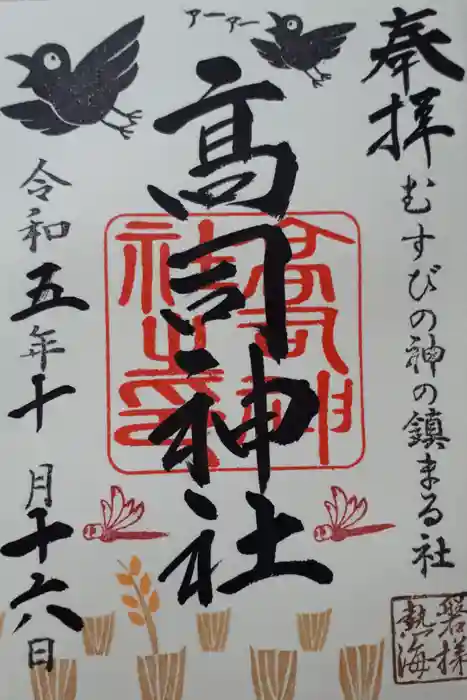 奉拝
むすびの神の鎮まる社
アーアー
高司神社
高司神社之印
令和五年十月十六日
磐梯
熱海